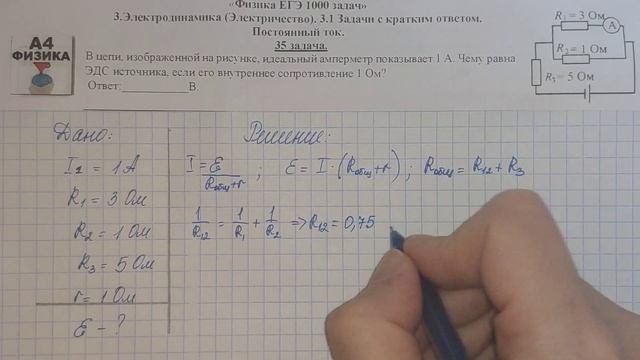 «Физика ЕГЭ 1000 задач»
3.Электродинамика (Электричество). 3.1 Задачи с кратким ответом.
Постоянный ток.
35 задача.
А4
ФИЗИКА
В цепи, изображенной на рисунке, идеальный амперметр показывает 1 А. Чему равна
ЭДС источника, если его внутреннее сопротивление 1 Ом?
Ответ:____________ В.
R₁ = 3 Ом
А
R₂ = 1 Ом
R₃ = 5 Ом
Дано:
I₁ = 1 А
R₁ = 3 Ом
R₂ = 1 Ом
R₃ = 5 Ом
r = 1 Ом
ℰ – ?
Решение:
I = ℰ/(Rобщ + r) ; ℰ = I · (Rобщ + r) ; Rобщ = R₁₂ + R₃
1/R₁₂ = 1/R₁ + 1/R₂ => R₁₂ = 0,75